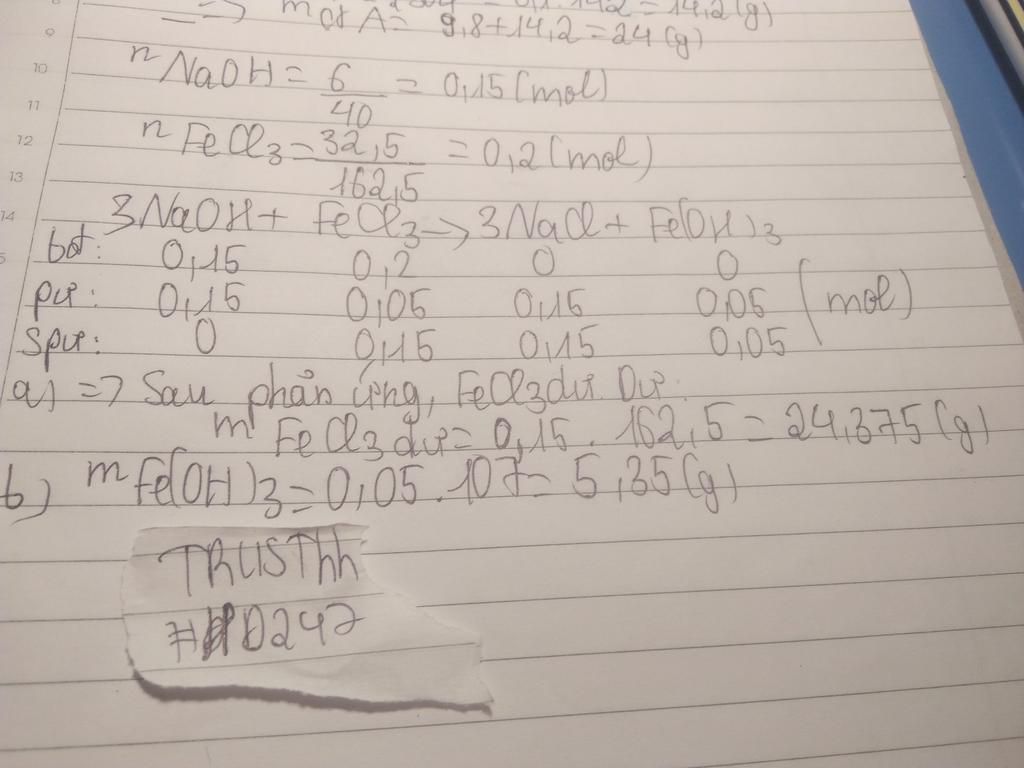 => m ct A = 9,8+14,2 = 24 (g)
n NaOH = 6/40 = 0,15 (mol)
n FeCl3 = 32,5/162,5 = 0,2 (mol)
3NaOH + FeCl3 -> 3NaCl + Fe(OH)3
bđ: 0,15 0,2 0 0
pư: 0,15 0,05 0,15 0,05 (mol)
spư: 0 0,15 0,15 0,05
a) => Sau phản ứng, FeCl3 dư. Dư:
m FeCl3 dư = 0,15 . 162,5 = 24,375 (g)
b) m Fe(OH)3 = 0,05 . 107 = 5,35 (g)
TRUSThh
D247
8
9
10
11
12
13
14